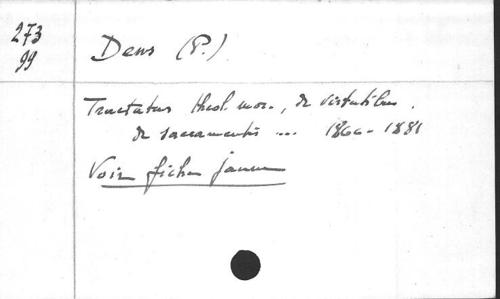 273
99
Dens (P.)
Tractatus theol. mor., de virtutibus.
de sacramentis ... 1866-1881
Voir fiche jaune